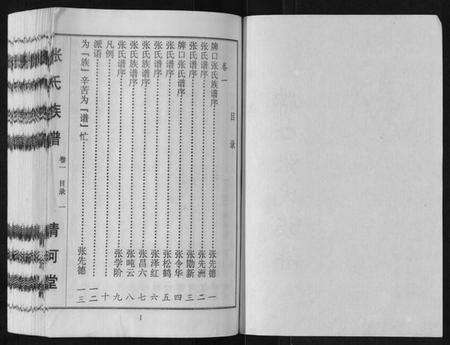 目录
卷一
牌口张氏族谱序 张先德 一
张氏谱序 张先洲 二
张氏谱序 张勋新 三
牌口张氏谱序 张令华 四
张氏谱序 张松鹤 五
张氏谱序 张泽红 六
张氏族谱序 张昌六 七
张氏族谱序 张鸣云 八
张氏谱序 张学阶 九
凡例 十
派语 一二
为“族”辛苦为“谱”忙 张先德 一三
张氏族谱
卷一
目录
一
清河堂
1